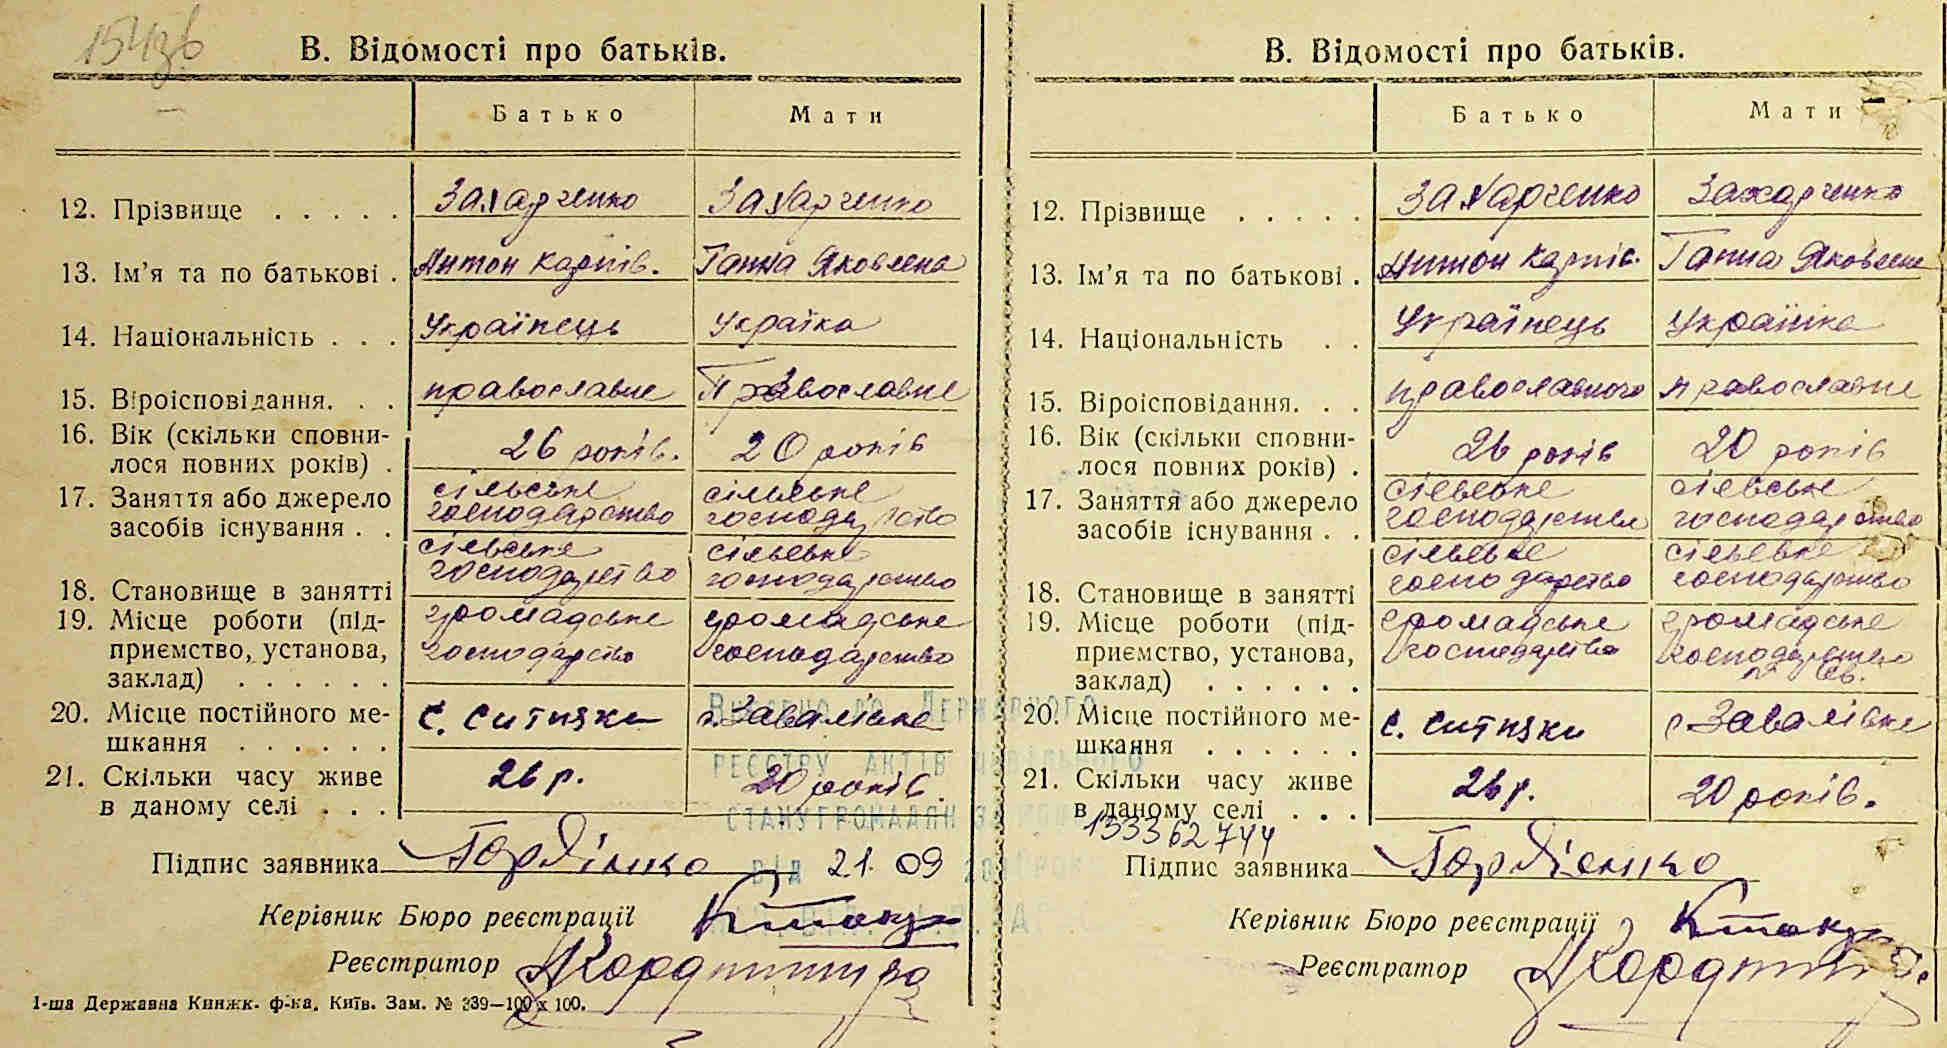 В. Відомості про батьків.
Батько Мати
12. Прізвище . . . . . Захарченко Захарченко
13. Ім’я та по батькові . Антон Карпів. Ганна Яковлена
14. Національність . . . Українець Україка
15. Віроісповідання. . . православне Православне
16. Вік (скільки сповни-
лося повних років) . 26 років. 20 років
17. Заняття або джерело сільське сільське
засобів існування . . господарство господарство
сільське сільське
18. Становище в занятті господарство господарство
19. Місце роботи (під- громадське громадське
приємство, установа, господарство господарство
заклад) . . . . . .
20. Місце постійного ме- с. Ситняки с. Завалівка
шкання . . . . . .
21. Скільки часу живе 26 р. 20 років.
в даному селі . . .
Підпис заявника Гордієнко
від 21.09
Керівник Бюро реєстрації
Реєстратор
1-ша Державна Книжк. ф-ка, Київ. Зам. № 339—100 х 100.
Внесено до Державного
реєстру актів цивільного
стану громадян за
В. Відомості про батьків.
Батько Мати
12. Прізвище . . . . . Захарченко Захарченко
13. Ім’я та по батькові . Антон Карпів. Ганна Яковлена
14. Національність . . Українець Українка
15. Віроісповідання. . . православного православне
16. Вік (скільки сповни-
лося повних років) . 26 років 20 років
17. Заняття або джерело сільське сільське
засобів існування . . господарство господарство
сільське сільське
18. Становище в занятті господарство господарство
19. Місце роботи (під- громадське громадське
приємство, установа, господарство господарство
заклад) . . . . . .
20. Місце постійного ме- с. Ситняки с. Завалівка
шкання . . . . . .
21. Скільки часу живе 26 р. 20 років.
в даному селі . . .
133362744
Підпис заявника Гордієнко
Керівник Бюро реєстрації
Реєстратор